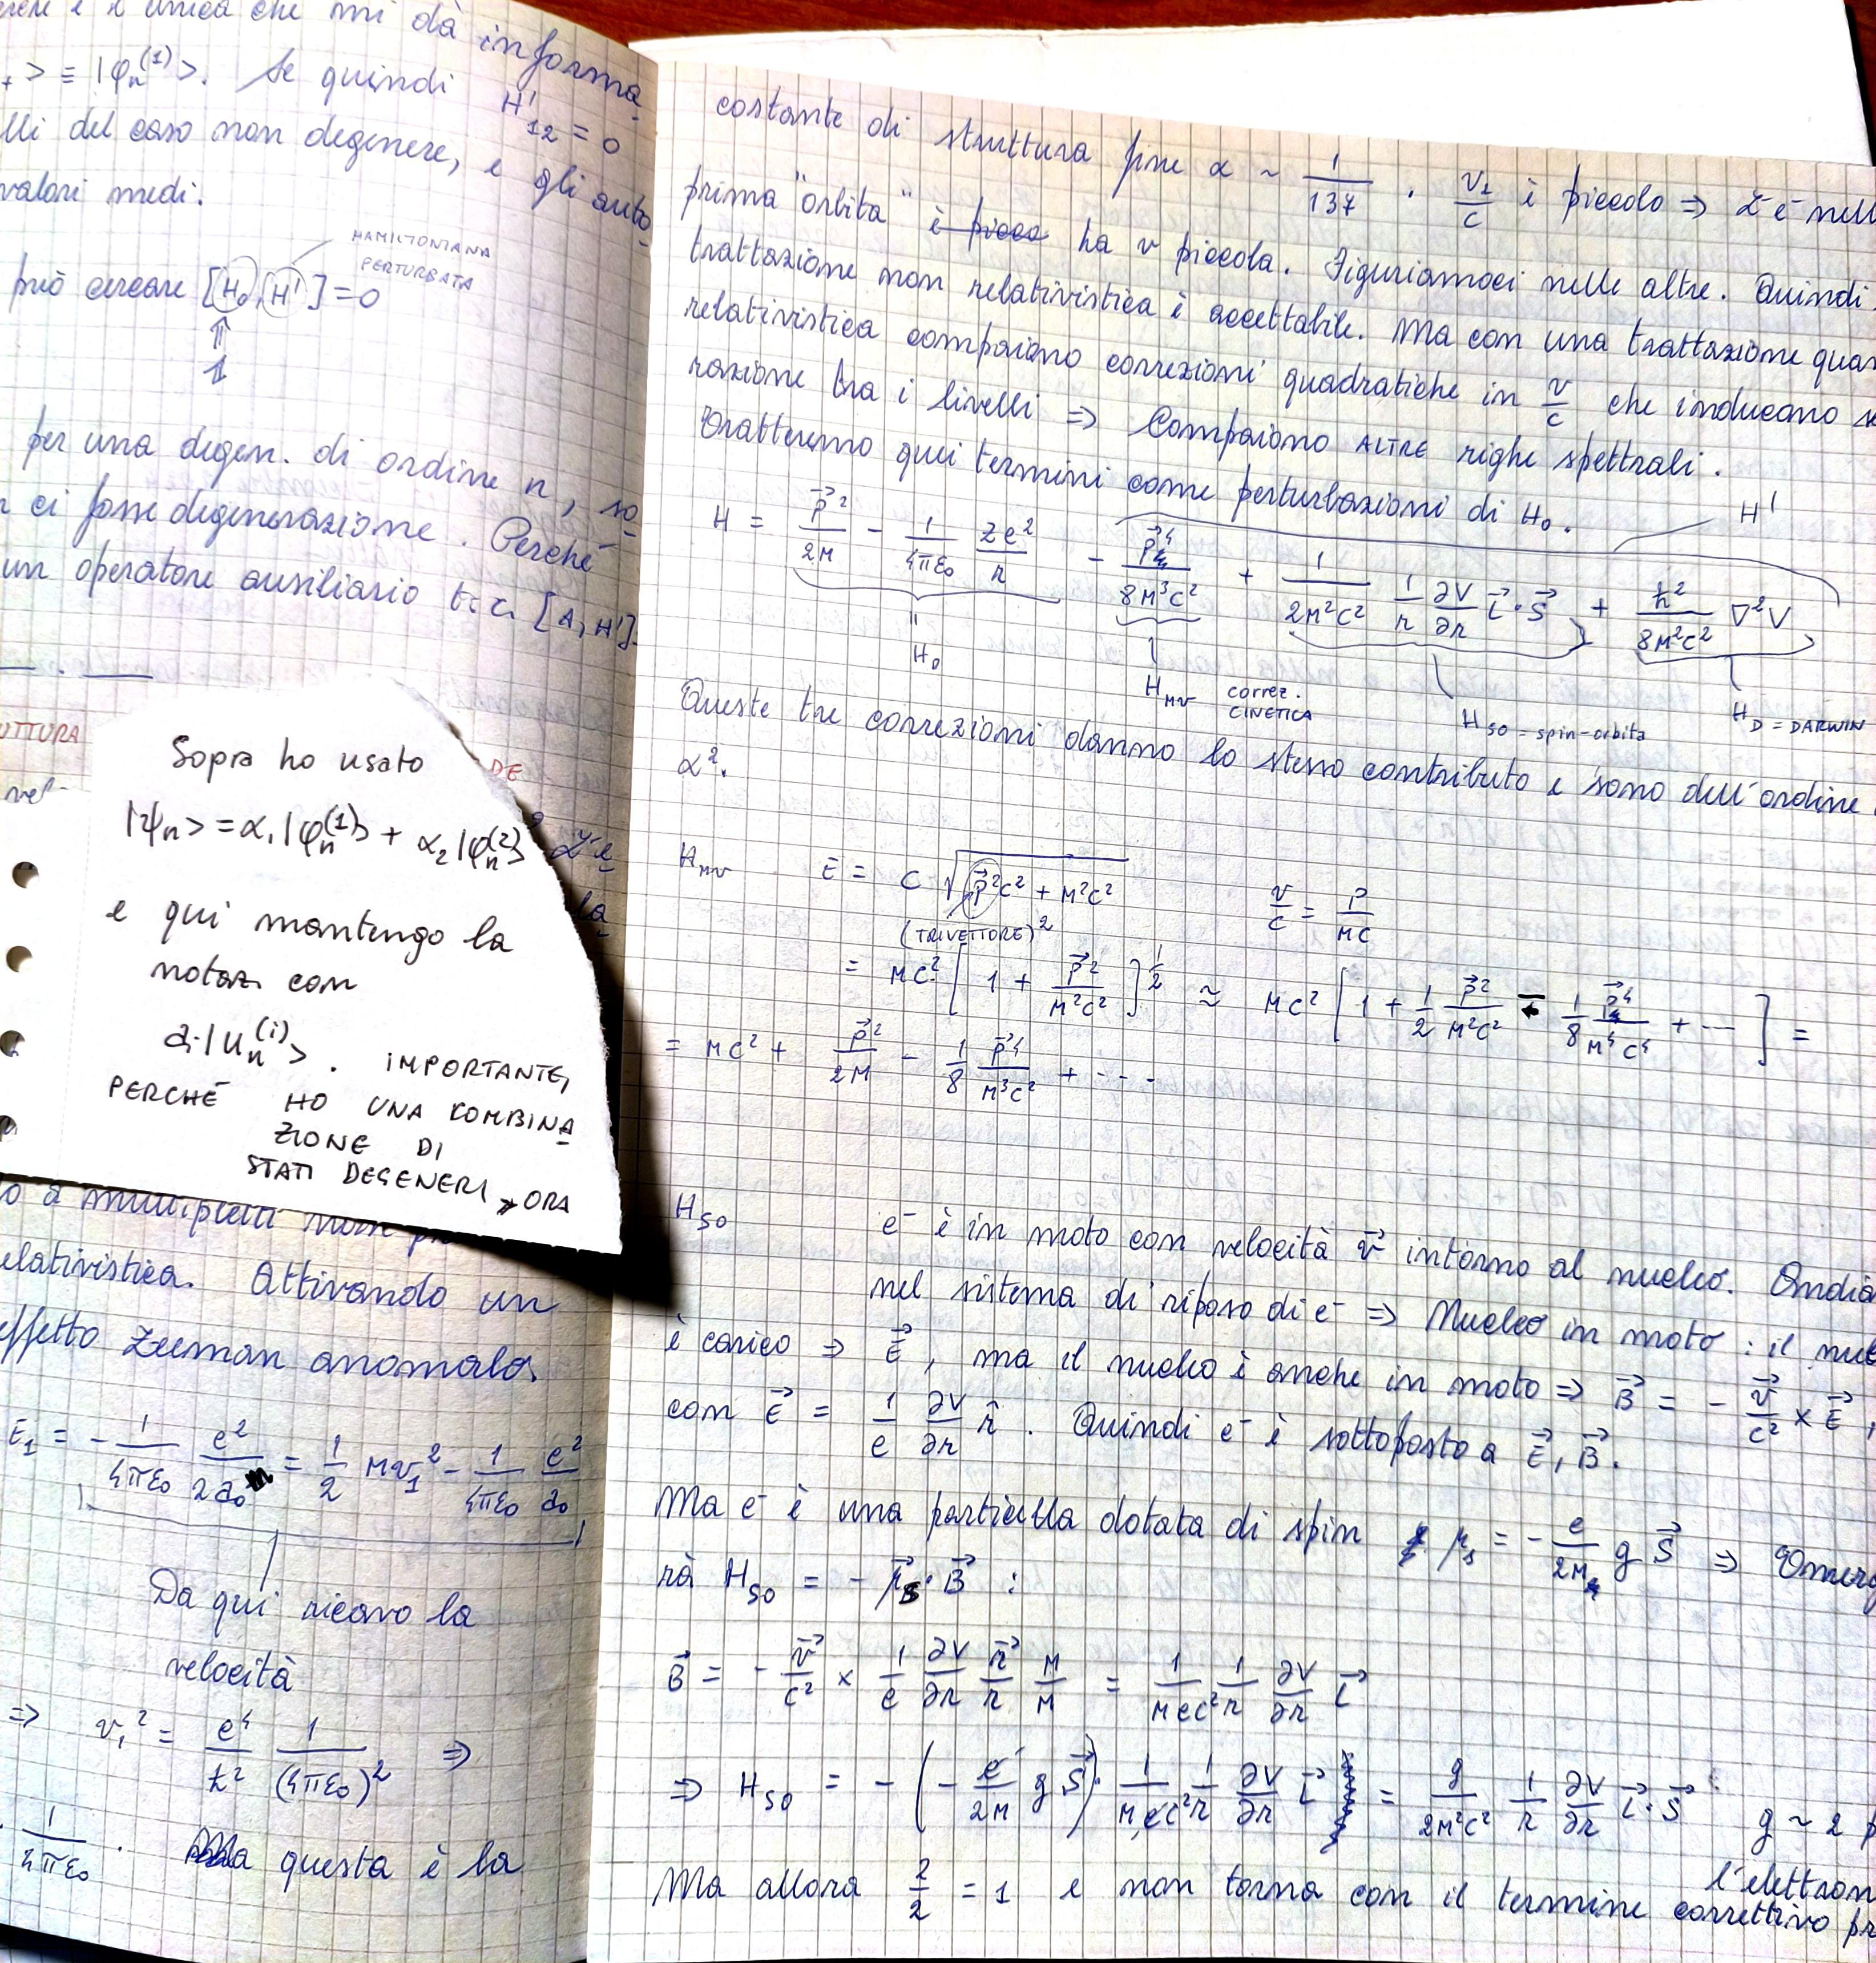 che mi dà informa
> ≡ |φₙ⁽¹⁾>. Se quindi H'₁₂ = 0
del caso non degenere, e gli auto
valori medi.
HAMILTONIANA
PERTURBATA
può cercare [H₀, H'] = 0
⇑
1
per una degen. di ordine n, so
ci fosse degenerazione. Perché
un operatore ausiliario t.c. [A, H']
DE
Sopra ho usato
|ψₙ> = α₁|φₙ⁽¹⁾> + α₂|φₙ⁽²⁾>
e qui mantengo la
notaz. con
aᵢ|uₙ⁽ⁱ⁾>. IMPORTANTE,
PERCHÉ HO UNA KOMBINA
ZIONE DI
STATI DEGENERI, ORA
Attivando un
effetto Zeeman anomalo.
E₁ = - 1/4πε₀ e²/2a₀ = 1/2 Mv₁² - 1/4πε₀ e²/a₀
Da qui ricavo la
velocità
⇒ v₁² = e⁴/ħ² 1/(4πε₀)² ⇒
1/4πε₀ . Ma questa è la
costante di struttura fine α ~ 1/137 . v₁/c è piccolo ⇒ L'e⁻
prima "orbita" ha v piccola. Figuriamoci nelle altre. Quindi
trattazione non relativistica è accettabile. Ma con una trattazione
relativistica compaiono correzioni quadratiche in v/c che inducono
razione tra i livelli ⇒ Compaiono ALTRE righe spettrali.
Tratteremo quei termini come perturbazioni di H₀. H'
H = p⃗²/2M - 1/4πε₀ Ze²/r - p⃗⁴/8M³c² + 1/2M²c² 1/r ∂V/∂r L⃗·S⃗ + ħ²/8M²c² ∇²V
"
H₀
H_MV CORREZ. CINETICA
H_SO = spin-orbita
H_D = DARWIN
Queste tre correzioni danno lo stesso contributo e sono dell'ordine
α².
H_MV E = c √(p⃗²c² + M²c²) v/c = p/Mc
(TRIVETTORE)²
= Mc² [1 + p⃗²/M²c²]^½ ≈ Mc² [1 + 1/2 p⃗²/M²c² - 1/8 p⃗⁴/M⁴c⁴ + ...] =
= Mc² + p⃗²/2M - 1/8 p⃗⁴/M³c² + ...
H_SO e⁻ è in moto con velocità v⃗ intorno al nucleo.
nel sistema di riposo di e⁻ ⇒ Nucleo in moto : il
è carico ⇒ E⃗, ma il nucleo è anche in moto ⇒ B⃗ = - v⃗/c² × E⃗,
con E⃗ = 1/e ∂V/∂r r̂. Quindi e⁻ è sottoposto a E⃗, B⃗.
Ma e⁻ è una particella dotata di spin μₛ = - e/2M g S⃗ ⇒
rà H_SO = - μ⃗ₛ·B⃗ :
B⃗ = - v⃗/c² × 1/e ∂V/∂r r⃗/r M/M = 1/Mec² 1/r ∂V/∂r L⃗
⇒ H_SO = - (- e/2M g S⃗)· 1/Mec² 1/r ∂V/∂r L⃗ = g/2M²c² 1/r ∂V/∂r L⃗·S⃗
g ~ 2
Ma allora 2/2 = 1 e non torna con il termine correttivo